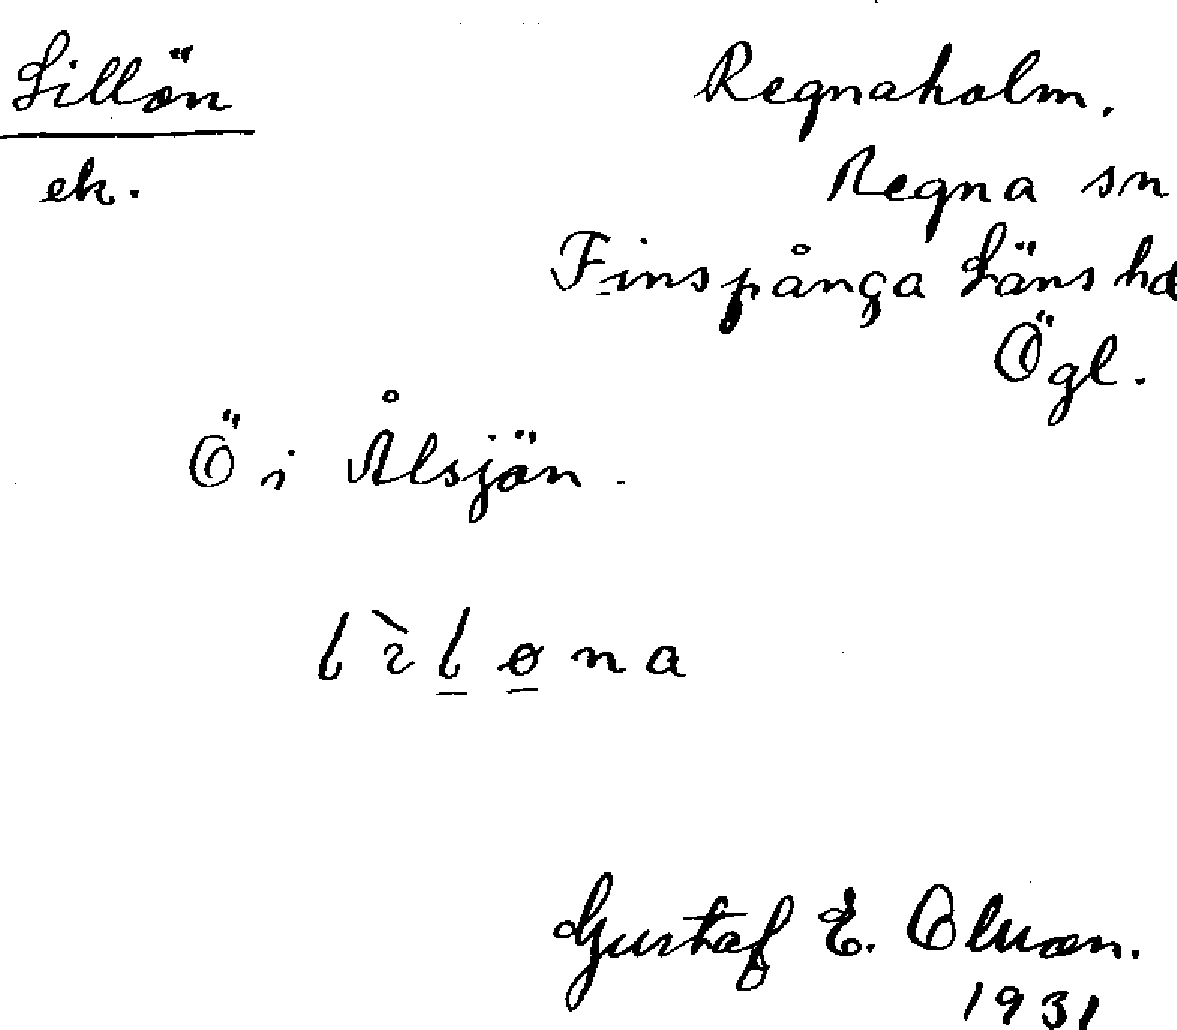 Lillön
Regnaholm.
ek.
Regna sn
Finspånga Läns hd
Ögl.
Ö i Ålsjön.
Gustaf E.
1931